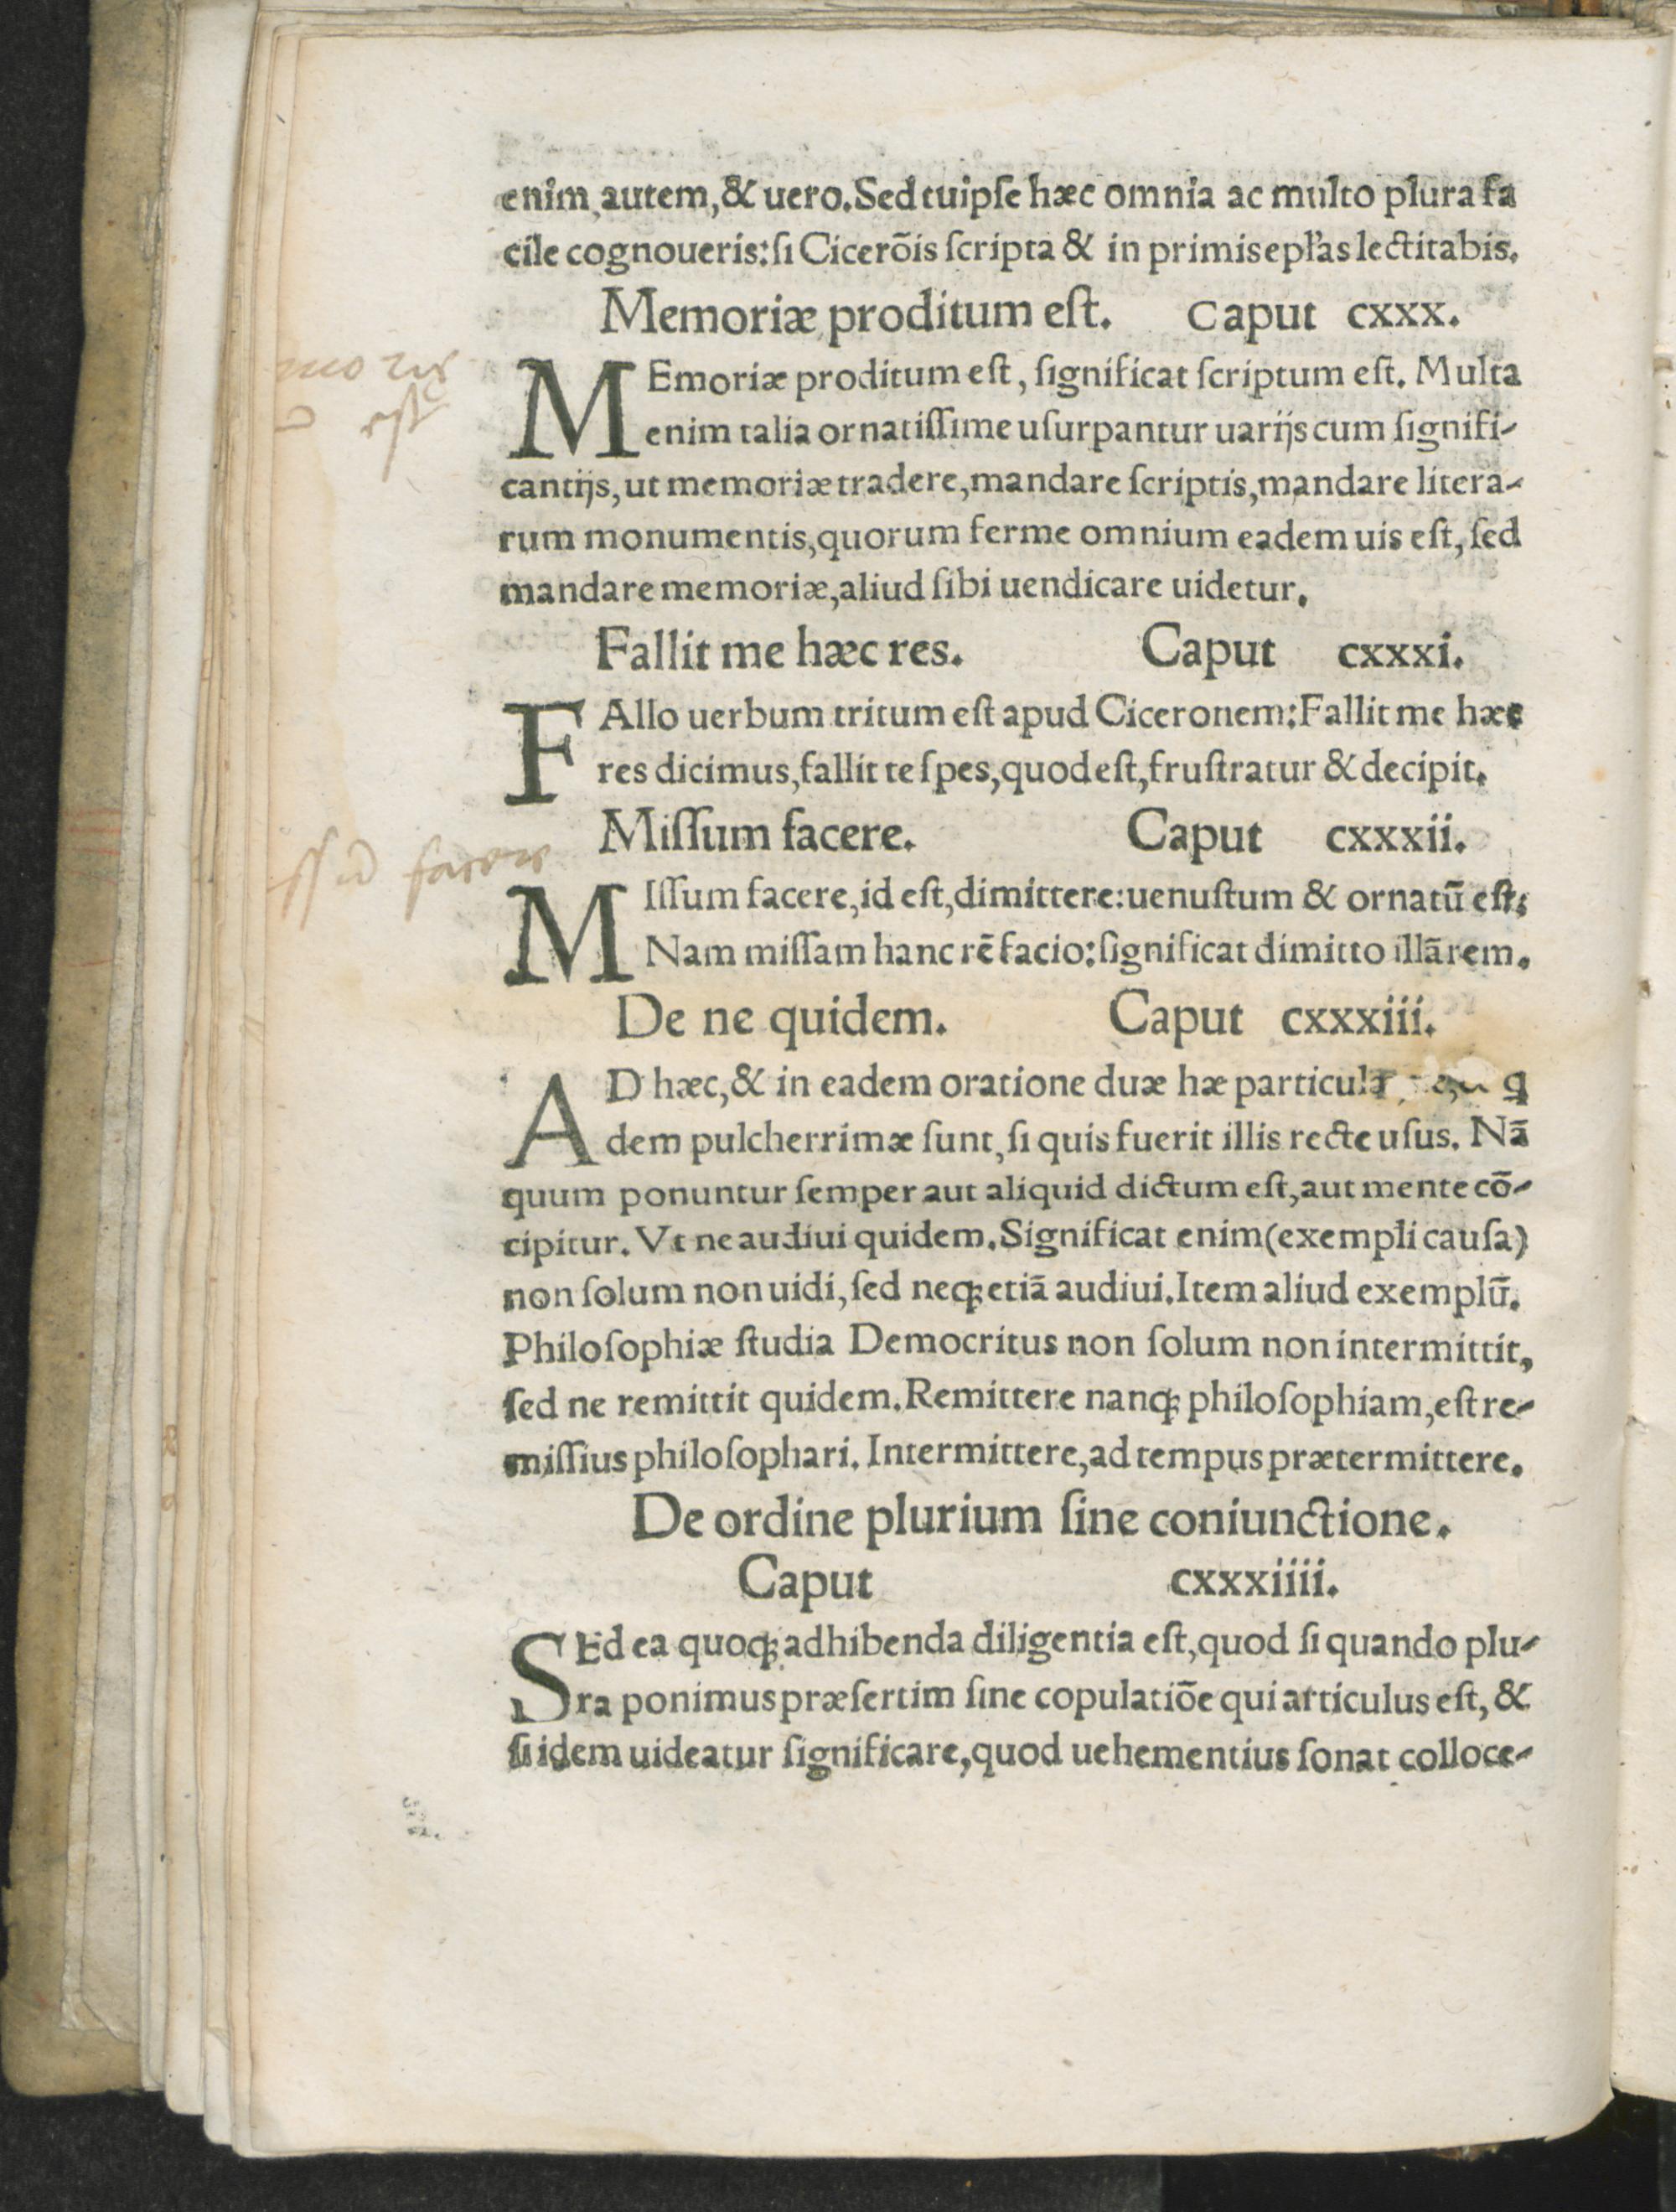 enim, autem, & uero. Sed tuipſe hæc omnia ac multo plura fa
cile cognoueris: ſi Cicerõis ſcripta & in primis epľas lectitabis.
Memoriæ proditum eſt. Caput cxxx.
MEmoriæ proditum eſt, ſignificat ſcriptum eſt. Multa
enim talia ornatiſſime uſurpantur uarijs cum ſignifi-
cantijs, ut memoriæ tradere, mandare ſcriptis, mandare litera-
rum monumentis, quorum ferme omnium eadem uis eſt, ſed
mandare memoriæ, aliud ſibi uendicare uidetur.
Fallit me hæc res. Caput cxxxi.
FAllo uerbum tritum eſt apud Ciceronem: Fallit me hæc
res dicimus, fallit te ſpes, quod eſt, fruſtratur & decipit.
Miſſum facere. Caput cxxxii.
MIſſum facere, id eſt, dimittere: uenuſtum & ornatũ eſt:
Nam miſſam hanc rẽ facio: ſignificat dimitto illã rem.
De ne quidem. Caput cxxxiii.
AD hæc, & in eadem oratione duæ hæ particulæ
dem pulcherrimæ ſunt, ſi quis fuerit illis recte uſus. Nã
quum ponuntur ſemper aut aliquid dictum eſt, aut mente cõ-
cipitur. Vt ne audiui quidem. Significat enim (exempli cauſa)
non ſolum non uidi, ſed neqꝫ etiã audiui. Item aliud exemplũ.
Philoſophiæ ſtudia Democritus non ſolum non intermittit,
ſed ne remittit quidem. Remittere nanqꝫ philoſophiam, eſt re-
miſſius philoſophari. Intermittere, ad tempus prætermittere.
De ordine plurium ſine coniunctione.
Caput cxxxiiii.
SEd ea quoqꝫ adhibenda diligentia eſt, quod ſi quando plu-
ra ponimus præſertim ſine copulatiõe qui articulus eſt, &
ſi idem uideatur ſignificare, quod uehementius ſonat colloce-